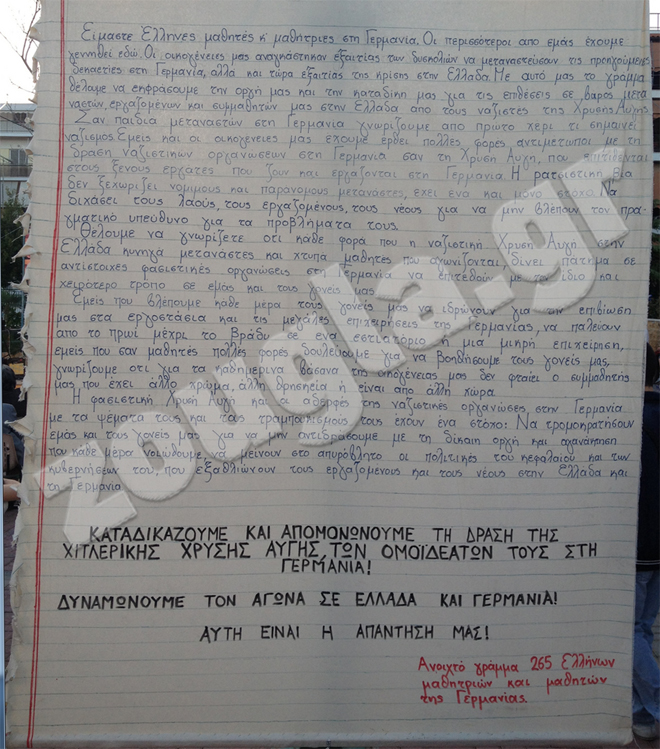 Είμαστε Έλληνες μαθητές κ' μαθήτριες στη Γερμανία. Οι περισσότεροι απο εμάς έχουμε
γεννηθεί εδώ. Οι οικογένειες μας αναγκάστηκαν εξαιτίας των δυσκολιών να μεταναστεύσουν τις προηγούμενες
δεκαετίες στη Γερμανία, αλλά και τώρα εξαιτίας της κρίσης στην Ελλάδα. Με αυτό μας το γράμμα
θέλαμε να εκφράσουμε την οργή μας και την καταδίκη μας για τις επιθέσεις σε βάρος μετα
ναστών, εργαζομένων και συμμαθητών μας στην Ελλάδα απο τους ναζιστές της Χρυσής Αυγής
Σαν παιδια μεταναστών στη Γερμανία γνωρίζουμε απο πρώτο χέρι τι σημαίνει
ναζισμος. Εμείς και οι οικογένειες μας έχουμε έρθει πολλές φορές αντιμέτωποι με τη
δράση ναζιστικών οργανώσεων στη Γερμανία σαν τη Χρυση Αυγη, που επιτίθενται
στους ξένους εργάτες που ζουν και εργάζονται στη Γερμανία. Η ρατσιστικη βία
δεν ξεχωρίζει νομιμους και παρανομους μετανάστες, έχει ένα και μόνο στόχο: Να
διχάσει τους λαούς, τους εργαζομένους, τους νέους για να μην βλέπουν τον πρα-
γματικό υπεύθυνο για τα προβλήματα τους.
Θέλουμε να γνωρίζετε οτι κάθε φορά που η ναζιστική Χρυση Αυγή στην
Ελλάδα κυνηγά μετανάστες και χτυπα μαθητες που αγωνίζονται, δίνει πάτημα σε
αντίστοιχες φασιστικές οργανώσεις στη Γερμανία να επιτεθούν με τον ίδιο και
χειρότερο τρόπο σε εμάς και τους γονείς μας.
Εμεις που βλέπουμε κάθε μέρα τους γονείς μας να ιδρώνουν για την επιβίωση
μας στα εργοστάσια και τις μεγάλες επιχειρήσεις της Γερμανίας, να παλεύουν
απο το πρωί μεχρι το βράδυ σε ένα εστιατόριο ή μια μικρή επιχείρηση,
εμείς που σαν μαθητές πολλές φορές δουλεύουμε για να βοηθήσουμε τους γονείς μας,
γνωρίζουμε οτι για τα καθημερινα βάσανα της οικογένειας μας δεν φταίει ο συμμαθητής
μας που έχει άλλο χρώμα, άλλη θρησκεία ή είναι απο άλλη χώρα.
Η φασιστική Χρυση Αυγή και οι αδερφές της ναζιστικές οργανώσεις στην Γερμανία
με τα ψέματα τους και τους τραμπουκισμούς τους έχουν ένα στόχο: Να τρομοκρατήσουν
εμάς και τους γονείς μας για να μην αντιδράσουμε με τη δίκαιη οργή και αγανάκτηση
που κάθε μέρα νοιώθουμε, να μείνουν στο απυρόβλητο οι πολιτικές του κεφαλαίου και των
κυβερνήσεων του, που εξαθλιώνουν τους εργαζομένους και τους νέους στην Ελλάδα και
τη Γερμανία
ΚΑΤΑΔΙΚΑΖΟΥΜΕ ΚΑΙ ΑΠΟΜΟΝΩΝΟΥΜΕ ΤΗ ΔΡΑΣΗ ΤΗΣ
ΧΙΤΛΕΡΙΚΗΣ ΧΡΥΣΗΣ ΑΥΓΗΣ, ΤΩΝ ΟΜΟΪΔΕΑΤΩΝ ΤΟΥΣ ΣΤΗ
ΓΕΡΜΑΝΙΑ!
ΔΥΝΑΜΩΝΟΥΜΕ ΤΟΝ ΑΓΩΝΑ ΣΕ ΕΛΛΑΔΑ ΚΑΙ ΓΕΡΜΑΝΙΑ!
ΑΥΤΗ ΕΙΝΑΙ Η ΑΠΑΝΤΗΣΗ ΜΑΣ!
Ανοιχτό γράμμα 265 Ελλήνων
μαθητριών και μαθητών
της Γερμανίας.
zougla.gr